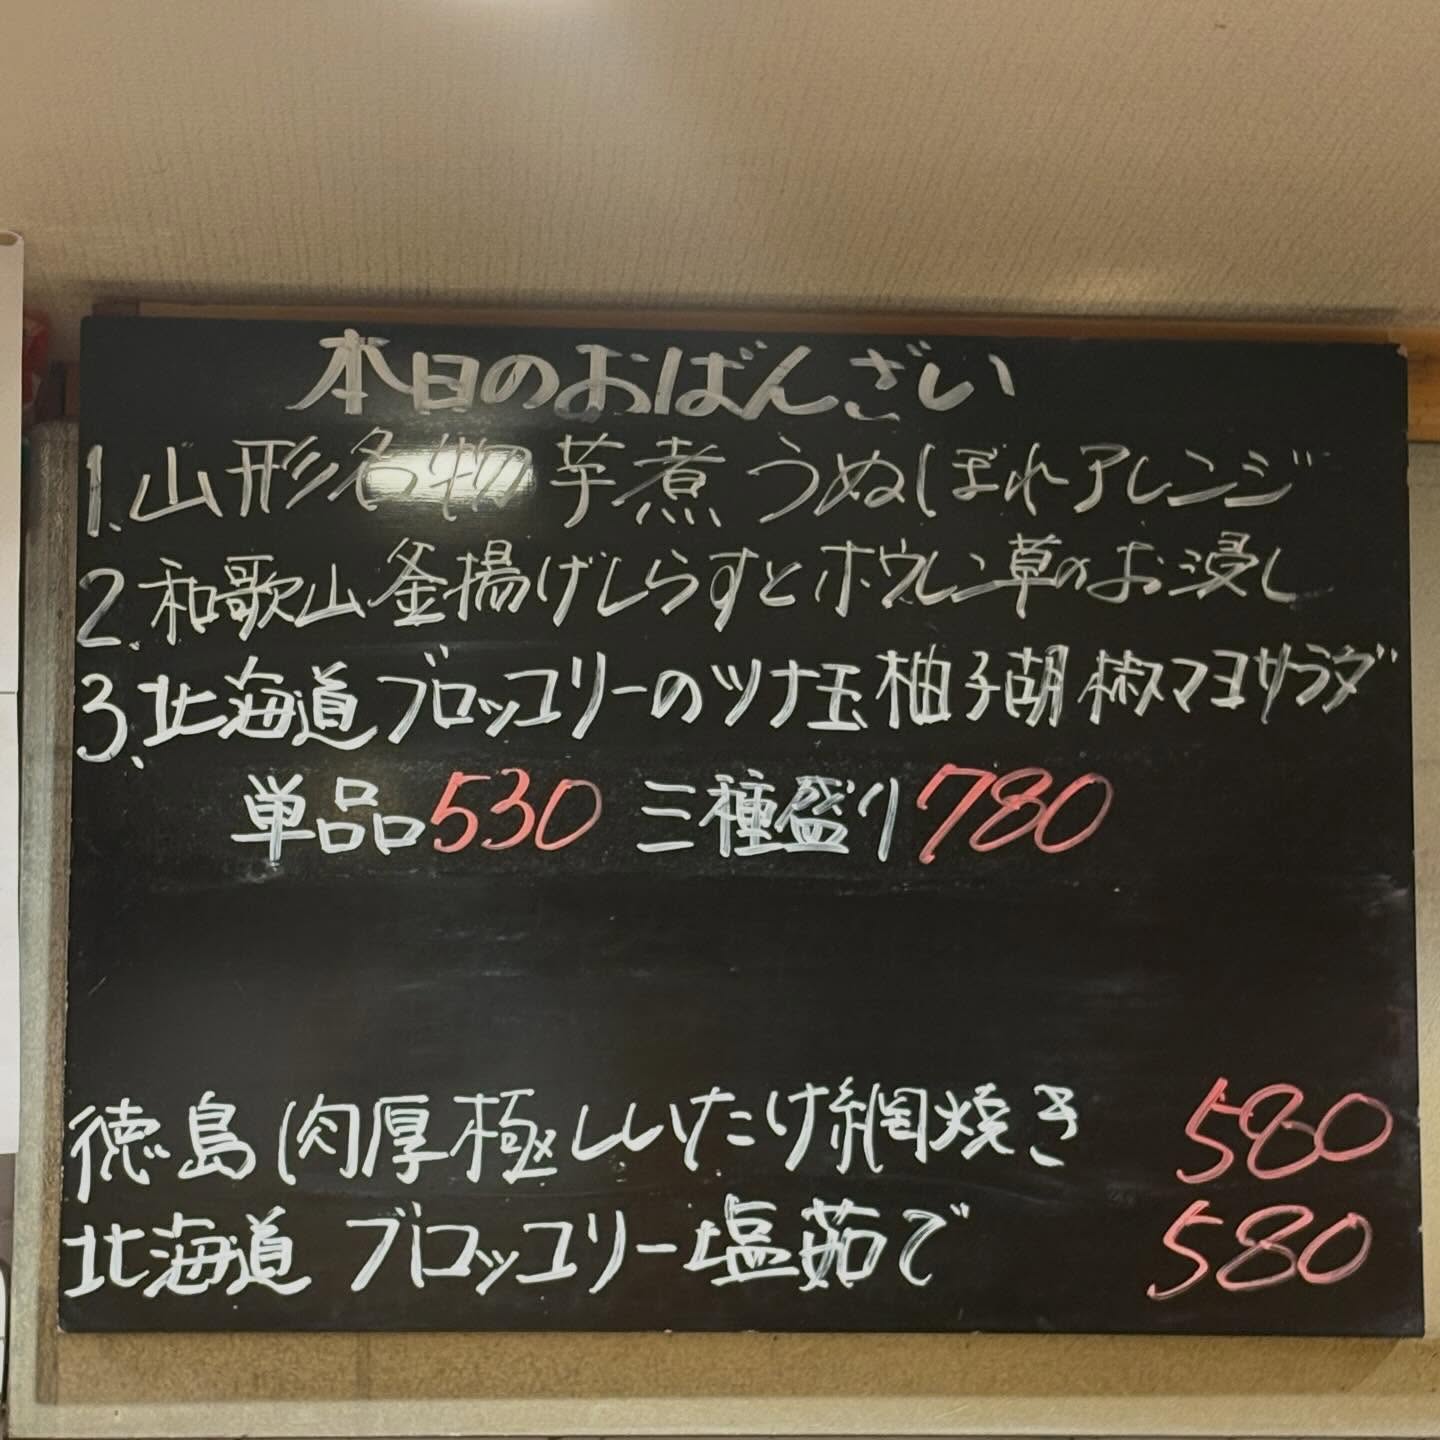 本日のおばんざい
1.山形名物 芋煮 うぬぼれアレンジ
2.和歌山 釜揚げしらすとホウレン草のお浸し
3.北海道 ブロッコリーのツナ玉柚子胡椒マヨサラダ
単品530 三種盛り780
徳島 肉厚極ししいたけ網焼き 580
北海道 ブロッコリー塩茹で 580